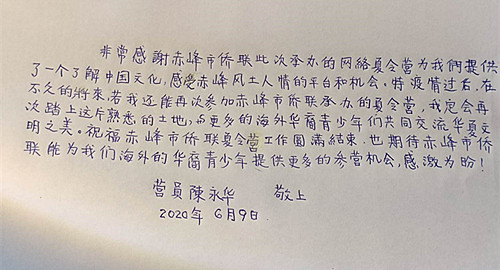 非常感謝赤峰市侨联此次承办的网络夏令营为我們提供
了一个了解中国文化，感受赤峰风土人情的平台和机会。待疫情过后，在
不久的将來，若我还能再次参加赤峰市侨联承办的夏令营，我定会再
次踏上这片熟悉的土地，与更多的海外华裔青少年们共同交流华夏文
明之美。祝福赤峰市侨联夏令营工作圆满結束，也期待赤峰市侨
联能为我们海外的华裔青少年提供更多的参营机会，感激为盼！
营員陳永华 敬上
2020年6月9日